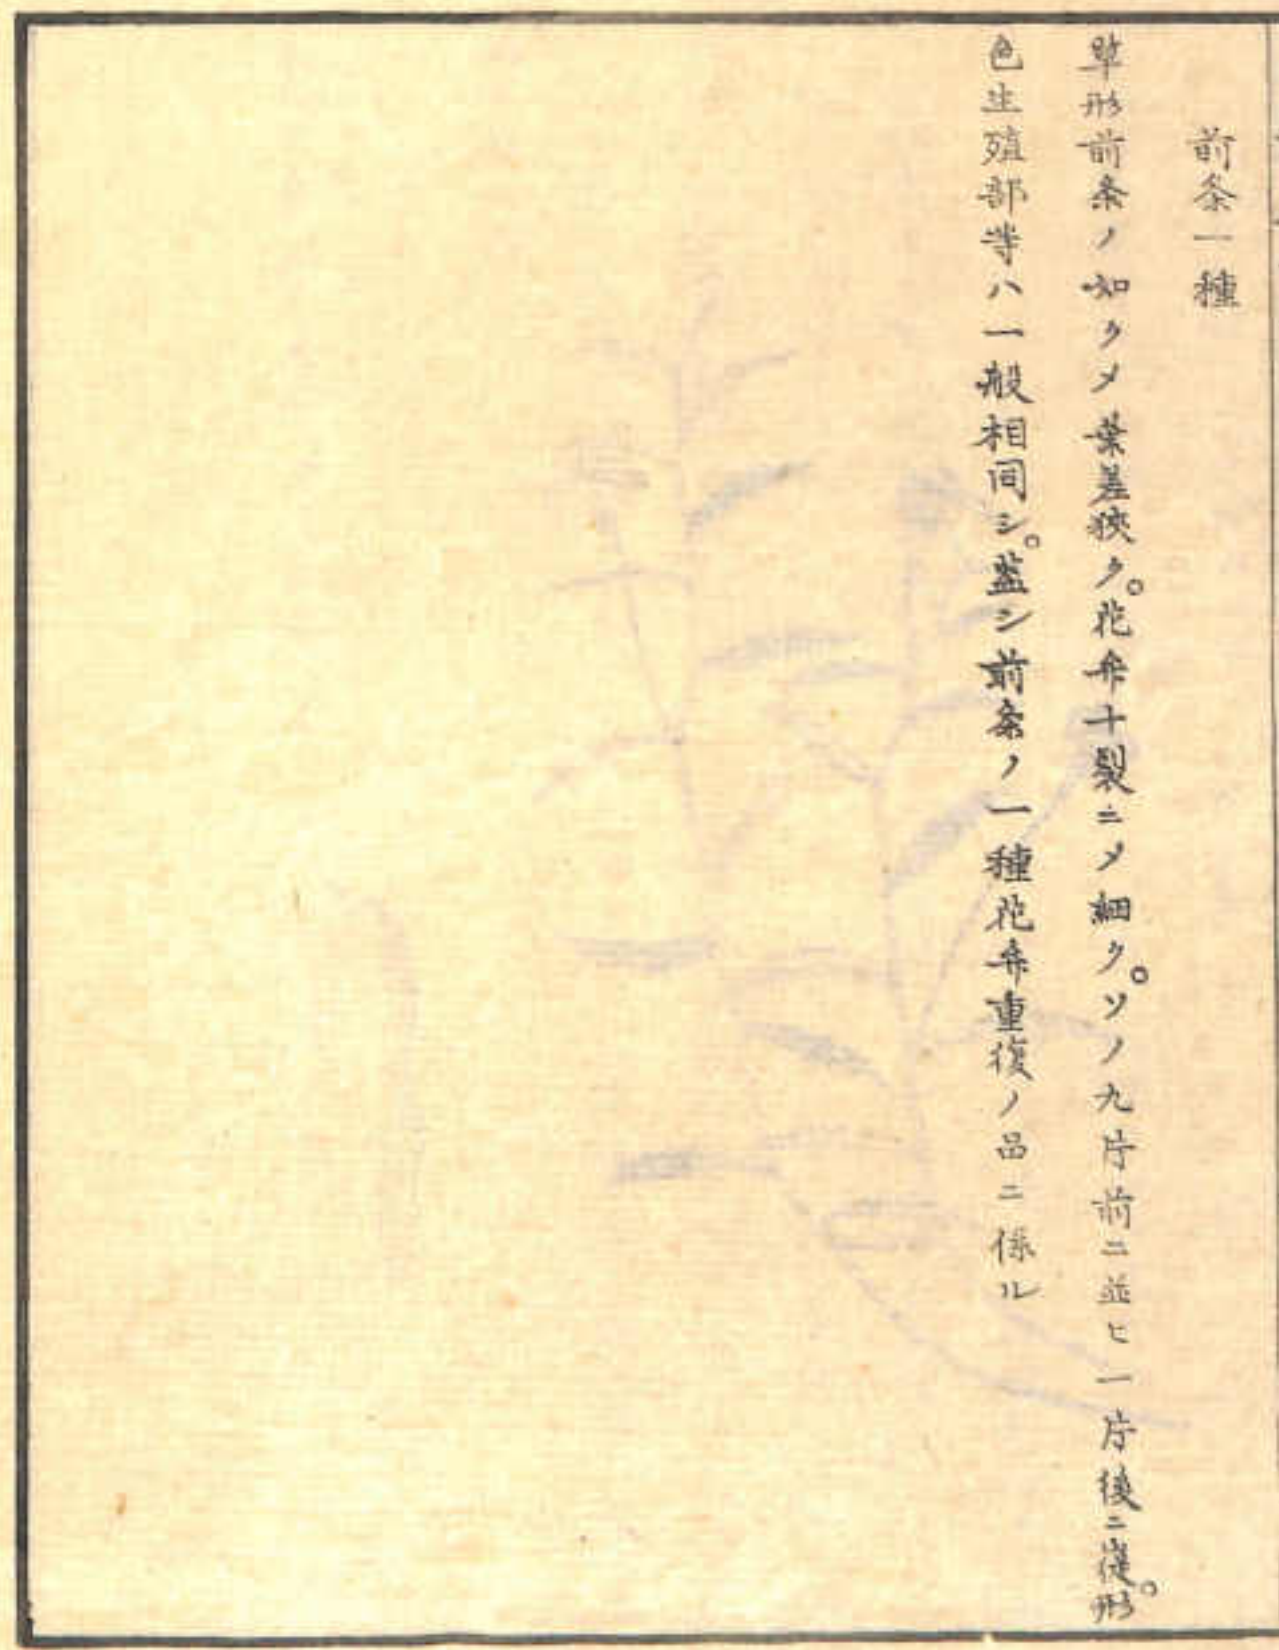 前条一種
草形前条ノ如クメ葉差狭ク。花弁十裂ニメ細ク。ソノ九片前ニ並ヒ一片後ニ従。形
色生殖部等ハ一般相同シ。蓋シ前条ノ一種花弁重復ノ品ニ係ル